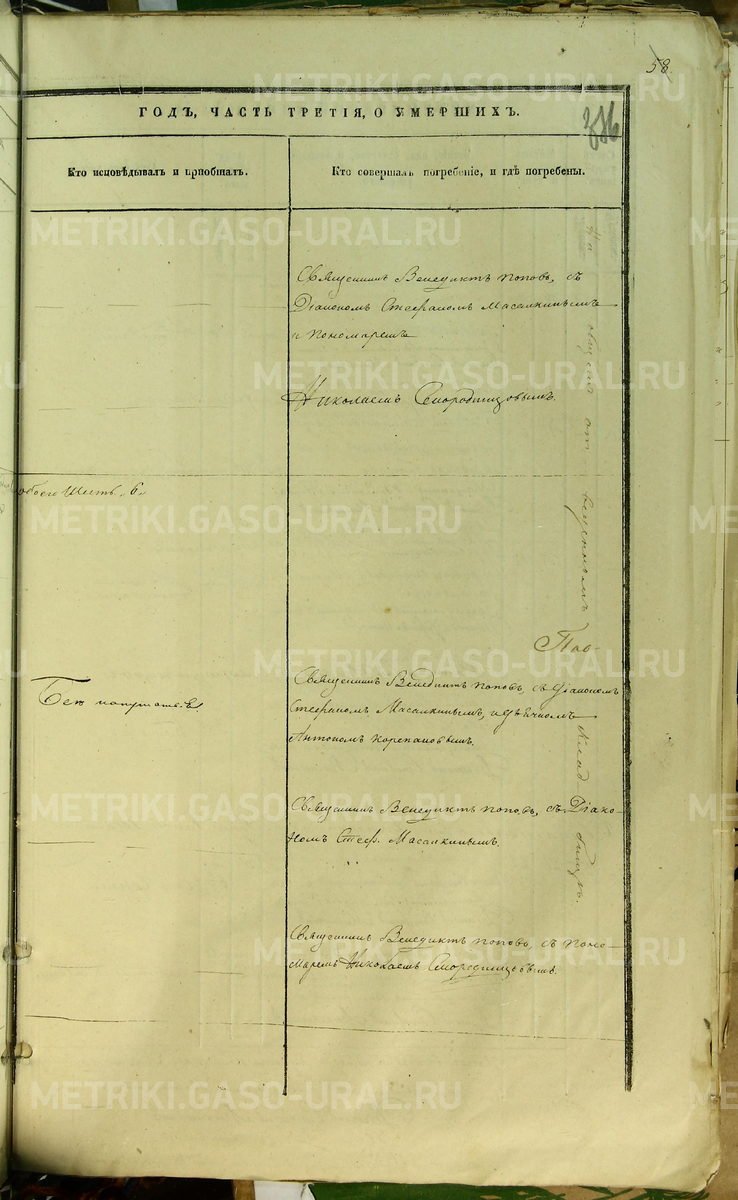 58
386
ГОДЪ, ЧАСТЬ ТРЕТІЯ, О УМЕРШИХЪ.
Кто исповѣдывалъ и пріобщалъ.
Кто совершалъ погребеніе, и гдѣ погребены.
Священникъ Венедиктъ Поповъ, съ
Діакономъ Стефаномъ Масалкинымъ
и Пономаремъ
Николаемъ Смородинцовымъ.
обоего шесть "6"
Священникъ Венедиктъ Поповъ, съ Діакономъ
Стефаномъ Масалкинымъ, и дьячкомъ
Антономъ Корепановымъ.
Священникъ Венедиктъ Поповъ, съ Діако-
номъ Стеф. Масалкинымъ.
Священникъ Венедиктъ Поповъ, съ Поно-
маремъ Николаемъ Смородинцовымъ.
На
отъ
клад
бищѣ.
METRIKI.GASO-URAL.RU